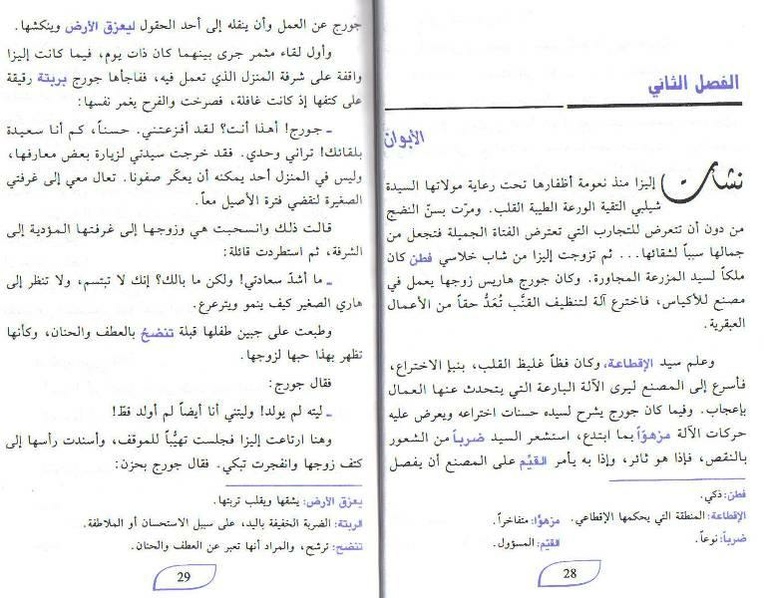 الفصل الثاني
الأبوان
نشأت إليزا منذ نعومة أظفارها تحت رعاية مولاتها السيدة
شيلبي التقية الورعة الطيبة القلب. ومرّت بسنّ النضج
من دون أن تتعرض للتجارب التي تعترض الفتاة الجميلة فتجعل من
جمالها سبباً لشقائها... ثم تزوجت إليزا من شاب خلاسي فطن كان
ملكاً لسيد المزرعة المجاورة. وكان جورج هاريس زوجها يعمل في
مصنع للأكياس، فاخترع آلة لتنظيف القنَّب تُعَدُّ حقاً من الأعمال
العبقرية.
وعلم سيد الإقطاعة، وكان فظاً غليظ القلب، بنبإ الاختراع،
فأسرع إلى المصنع ليرى الآلة البارعة التي يتحدث عنها العمال
بإعجاب. وفيما كان جورج يشرح لسيده حسنات اختراعه ويعرض عليه
حركات الآلة مزهوّاً بما ابتدع، استشعر السيد ضرباً من الشعور
بالنقص، فإذا هو ثائر، وإذا به يأمر القيّم على المصنع أن يفصل
فطن: ذكي.
الإقطاعة: المنطقة التي يحكمها الإقطاعي. مزهوًا: متفاخراً.
ضرباً: نوعاً. القيّم: المسؤول.
28
جورج عن العمل وأن ينقله إلى أحد الحقول ليعزق الأرض وينكشها.
وأول لقاء مثمر جرى بينهما كان ذات يوم، فيما كانت إليزا
واقفة على شرفة المنزل الذي تعمل فيه، ففاجأها جورج بربتة رقيقة
على كتفها إذ كانت غافلة، فصرخت والفرح يغمر نفسها:
ـ جورج! أهذا أنت؟ لقد أفزعتني. حسناً، كم أنا سعيدة
بلقائك! تراني وحدي. فقد خرجت سيدتي لزيارة بعض معارفها،
وليس في المنزل أحد يمكنه أن يعكّر صفونا. تعال معي إلى غرفتي
الصغيرة لنقضي فترة الأصيل معاً.
قالت ذلك وانسحبت هي وزوجها إلى غرفتها المؤدية إلى
الشرفة، ثم استطردت قائلة:
ـ ما أشدّ سعادتي! ولكن ما بالك؟ إنك لا تبتسم، ولا تنظر إلى
هاري الصغير كيف ينمو ويترعرع.
وطبعت على جبين طفلها قبلة تنضحُ بالعطف والحنان، وكأنها
تظهر بهذا حبها لزوجها.
فقال جورج:
ـ ليته لم يولد! وليتني أنا أيضاً لم أولد قطّ!
وهنا ارتاعت إليزا فجلست تهيُّباً للموقف، وأسندت رأسها إلى
كتف زوجها وانفجرت تبكي. فقال جورج بحزن:
يعزق الأرض: يشقها ويقلب تربتها.
الربتة: الضربة الخفيفة باليد، على سبيل الاستحسان أو الملاطفة.
تنضح: ترشح، والمراد أنها تعبر عن العطف والحنان.
29